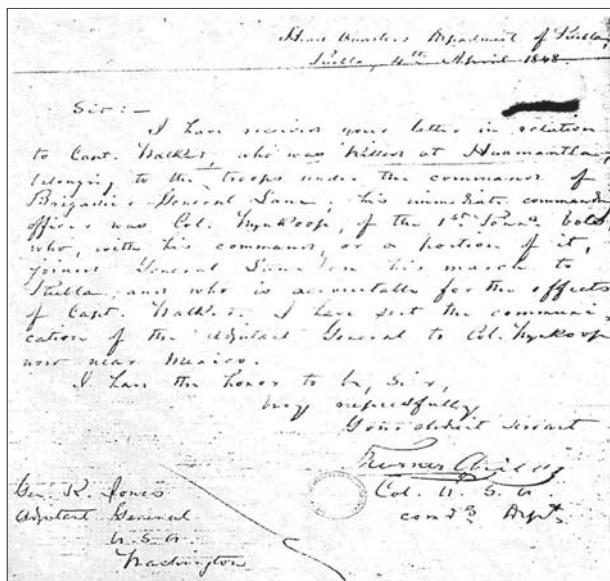 Head Quarters Department of Puebla,
Puebla, 4th April 1848
Sir:—
I have received your letter in relation
to Capt. Walker, who was killed at Huamantla,
belonging to the troops under the command of
Brigadier General Lane; his immediate commanding
officer was Col. Wynkoop, of the 1st Penna. Vols,
who, with his command, or a portion of it,
joined General Lane on his march to
Puebla, and who is accountable for the effects
of Capt. Walker. I have sent the communi-
cation of the Adjutant General to Col. Wynkoop
now near Mexico.
I have the honor to be, Sir,
very respectfully,
Your obedient servant
Thomas Childs
Col. U. S. A.
comdg Dept.
Gen. R. Jones
Adjutant General
U. S. A.
Washington